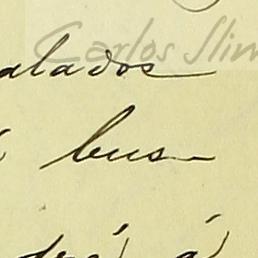 Carlos Slim
alados
bus
drá á